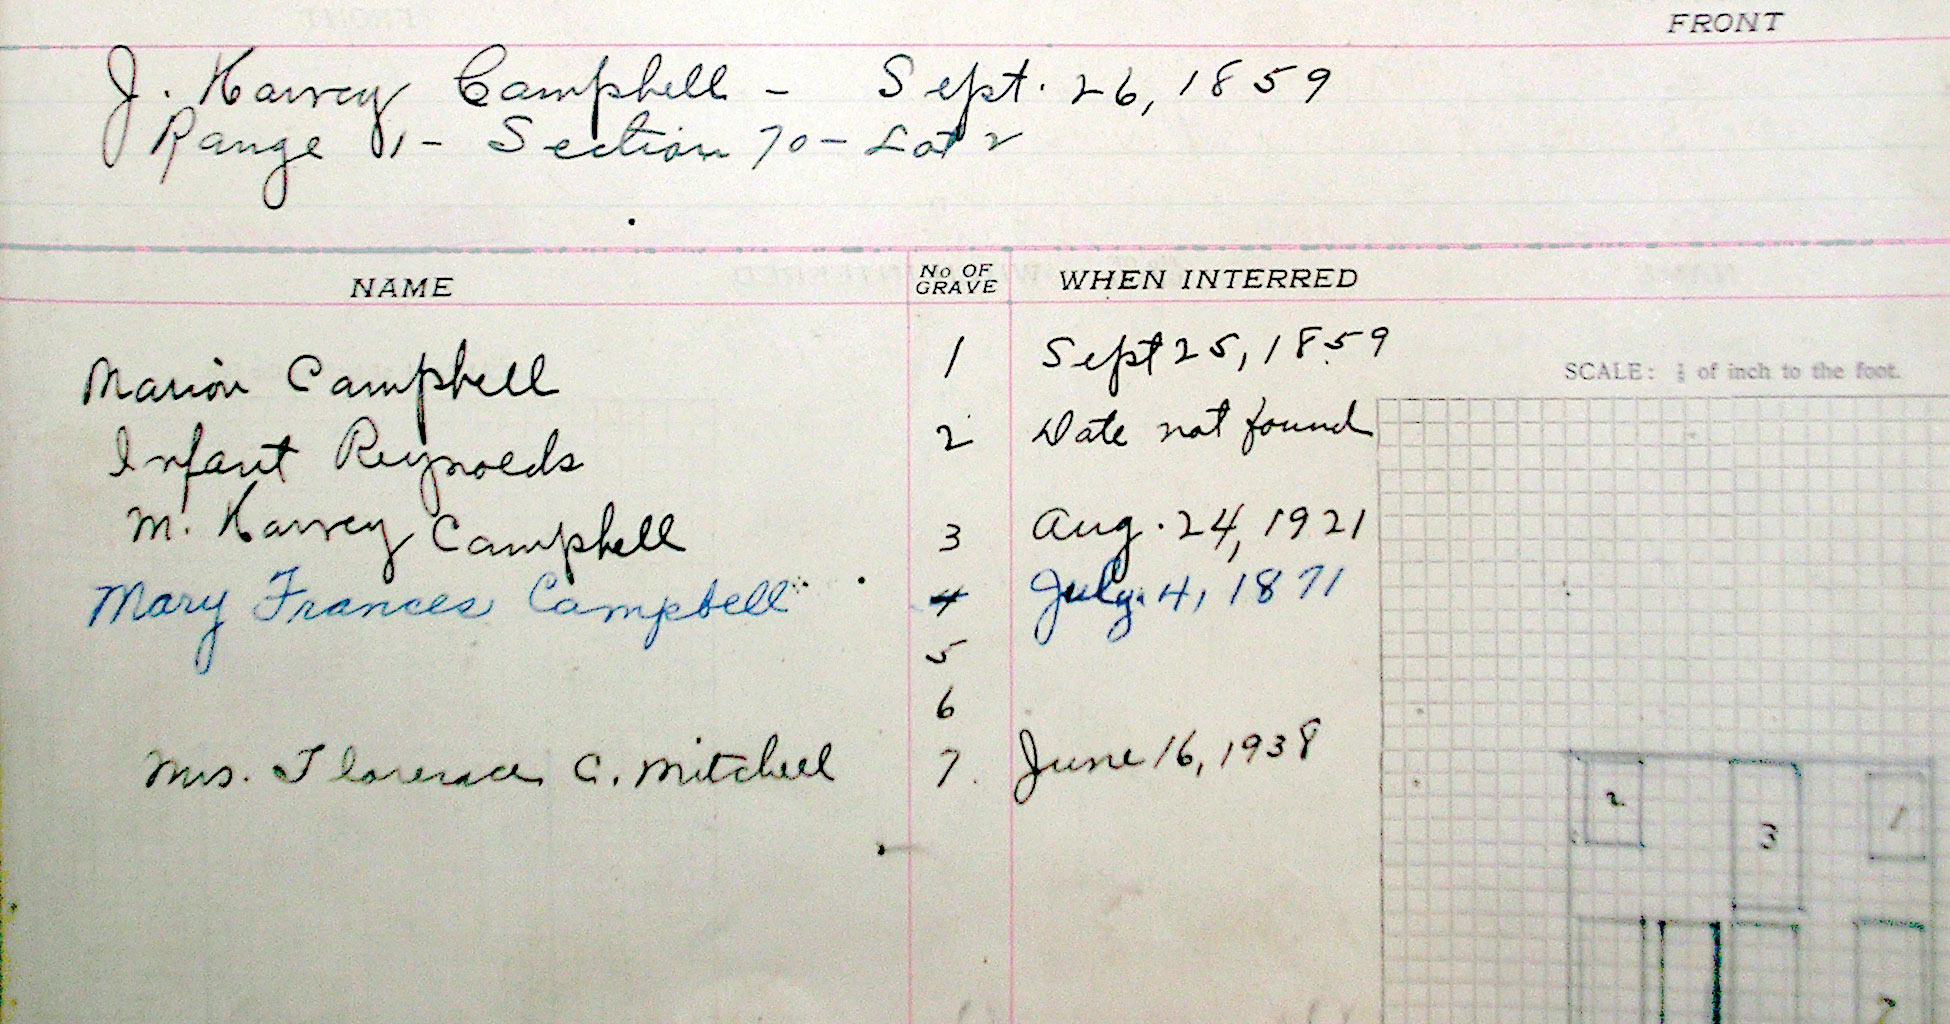 FRONT
J. Harvey Campbell - Sept. 26, 1859
Range 1 - Section 70 - Lot 2
NAME No OF GRAVE WHEN INTERRED
Marion Campbell 1 Sept 25, 1859
SCALE: of inch to the foot.
Infant Reynolds 2 Date not found
M. Harvey Campbell 3 Aug. 24, 1921
Mary Frances Campbell 4 July 4, 1871
5
6
Mrs. Florence C. Mitchell 7. June 16, 1938
2 3 1
7